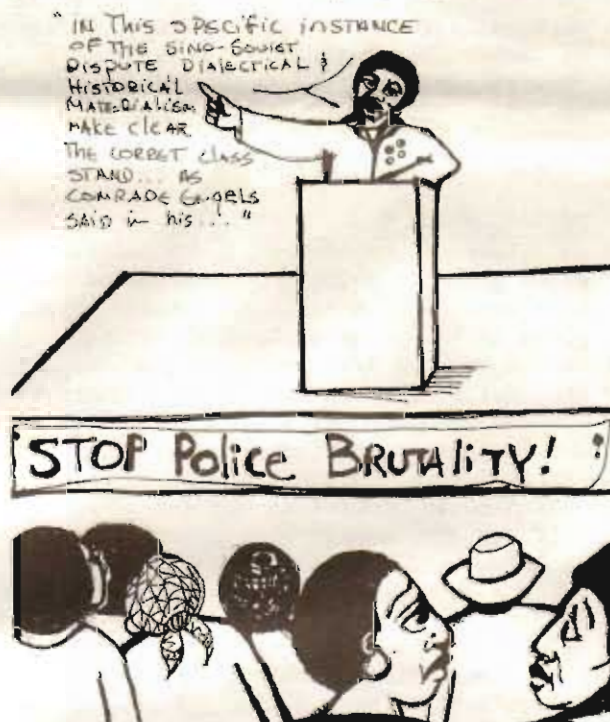 "IN THIS SPECIFIC INSTANCE
OF THE SINO-SOVIET
DISPUTE DIALECTICAL &
HISTORICAL
MATERIALISM
MAKE CLEAR
THE CORRET CLASS
STAND... AS
COMRADE ENGELS
SAID in his..."
STOP POLICE BRUTALITY!